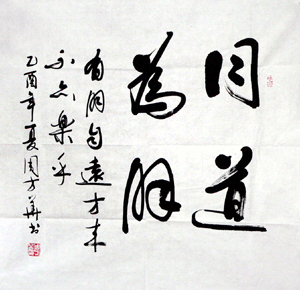 同道
為朋
有朋自遠方来
不亦樂乎
乙酉年夏周方華书